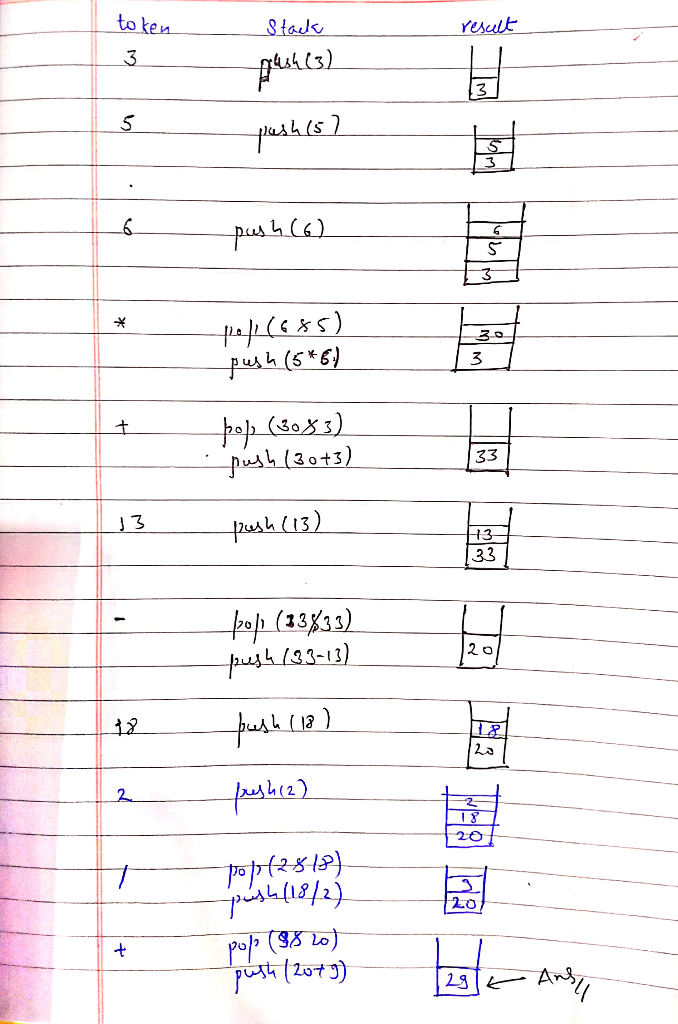 token Stack result
3 push(3) 3
5 push(5) 5
3
6 push(6) 6
5
3
* pop(6&5) 30
push(5*6) 3
+ pop(30&3)
push(30+3) 33
13 push(13) 13
33
- pop(13&33)
push(33-13) 20
18 push(18) 18
20
2 push(2) 2
18
20
/ pop(2&18) 9
push(18/2) 20
+ pop(9&20)
push(20+9) 29 ← Ans//